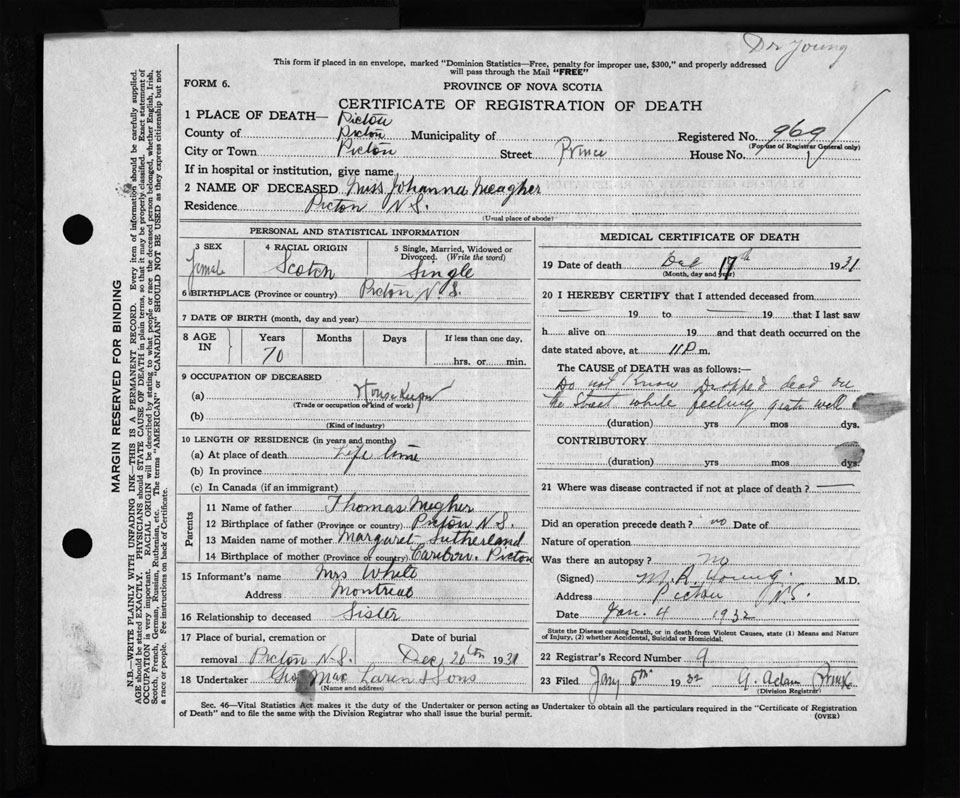 Dr Young
This form if placed in an envelope, marked "Dominion Statistics—Free, penalty for improper use, $300," and properly addressed
will pass through the Mail "FREE"
FORM 6.
PROVINCE OF NOVA SCOTIA
CERTIFICATE OF REGISTRATION OF DEATH
1 PLACE OF DEATH— Pictou
County of Pictou Municipality of Registered No. 969
City or Town Pictou Street Prince House No. (For use of Registrar General only)
If in hospital or institution, give name
2 NAME OF DECEASED Miss Johanna Meagher
Residence Pictou N.S.
(Usual place of abode)
PERSONAL AND STATISTICAL INFORMATION
3 SEX 4 RACIAL ORIGIN 5 Single, Married, Widowed or
Divorced. (Write the word)
Female Scotch Single
6 BIRTHPLACE (Province or country) Pictou N.S.
7 DATE OF BIRTH (month, day and year)
8 AGE IN Years Months Days If less than one day,
70 hrs. or min.
9 OCCUPATION OF DECEASED
(a) Housekeeper
(Trade or occupation or kind of work)
(b)
(Kind of industry)
10 LENGTH OF RESIDENCE (in years and months)
(a) At place of death Life time
(b) In province
(c) In Canada (if an immigrant)
Parents
11 Name of father Thomas Megher
12 Birthplace of father (Province or country) Pictou N.S.
13 Maiden name of mother Margaret Sutherland
14 Birthplace of mother (Province or country) Caribou. Pictou
15 Informant's name Mrs White
Address Montreal
16 Relationship to deceased Sister
17 Place of burial, cremation or Date of burial
removal Pictou N.S. Dec 20th 1931
18 Undertaker Geo MacLaren & Sons
(Name and address)
MEDICAL CERTIFICATE OF DEATH
19 Date of death Dec 17th 1931
(Month, day and year)
20 I HEREBY CERTIFY that I attended deceased from
19 to 19 that I last saw
h alive on 19 and that death occurred on the
date stated above, at 11 P m.
The CAUSE of DEATH was as follows:—
Do not Know Dropped dead on
the Street while feeling quite well
(duration) yrs mos dys.
CONTRIBUTORY
(duration) yrs mos dys.
21 Where was disease contracted if not at place of death ?
Did an operation precede death ? no Date of
Nature of operation
Was there an autopsy ? no
(Signed) M.R. Young. M.D.
Address Pictou N.S.
Date Jan. 4 1932
State the Disease causing Death, or in death from Violent Causes, state (1) Means and Nature
of Injury, (2) whether Accidental, Suicidal or Homicidal.
22 Registrar's Record Number 9
23 Filed Jany 5th 1932 G. Adam
(Division Registrar)
Sec. 46—Vital Statistics Act makes it the duty of the Undertaker or person acting as Undertaker to obtain all the particulars required in the "Certificate of Registration
of Death" and to file the same with the Division Registrar who shall issue the burial permit.
(OVER)
MARGIN RESERVED FOR BINDING
N.B.—WRITE PLAINLY WITH UNFADING INK—THIS IS A PERMANENT RECORD. Every item of information should be carefully supplied.
AGE should be stated EXACTLY. PHYSICIANS should STATE CAUSE OF DEATH in plain terms, so that it may be properly classified. Exact statement of
OCCUPATION is very important. RACIAL ORIGIN will be described by stating to what people or race the deceased person belonged, whether English, Irish,
Scotch, French, German, Russian, Ruthenian, etc. The terms "AMERICAN" or "CANADIAN" SHOULD NOT BE USED as they express citizenship but not
a race or people. Fee instructions on back of Certificate.